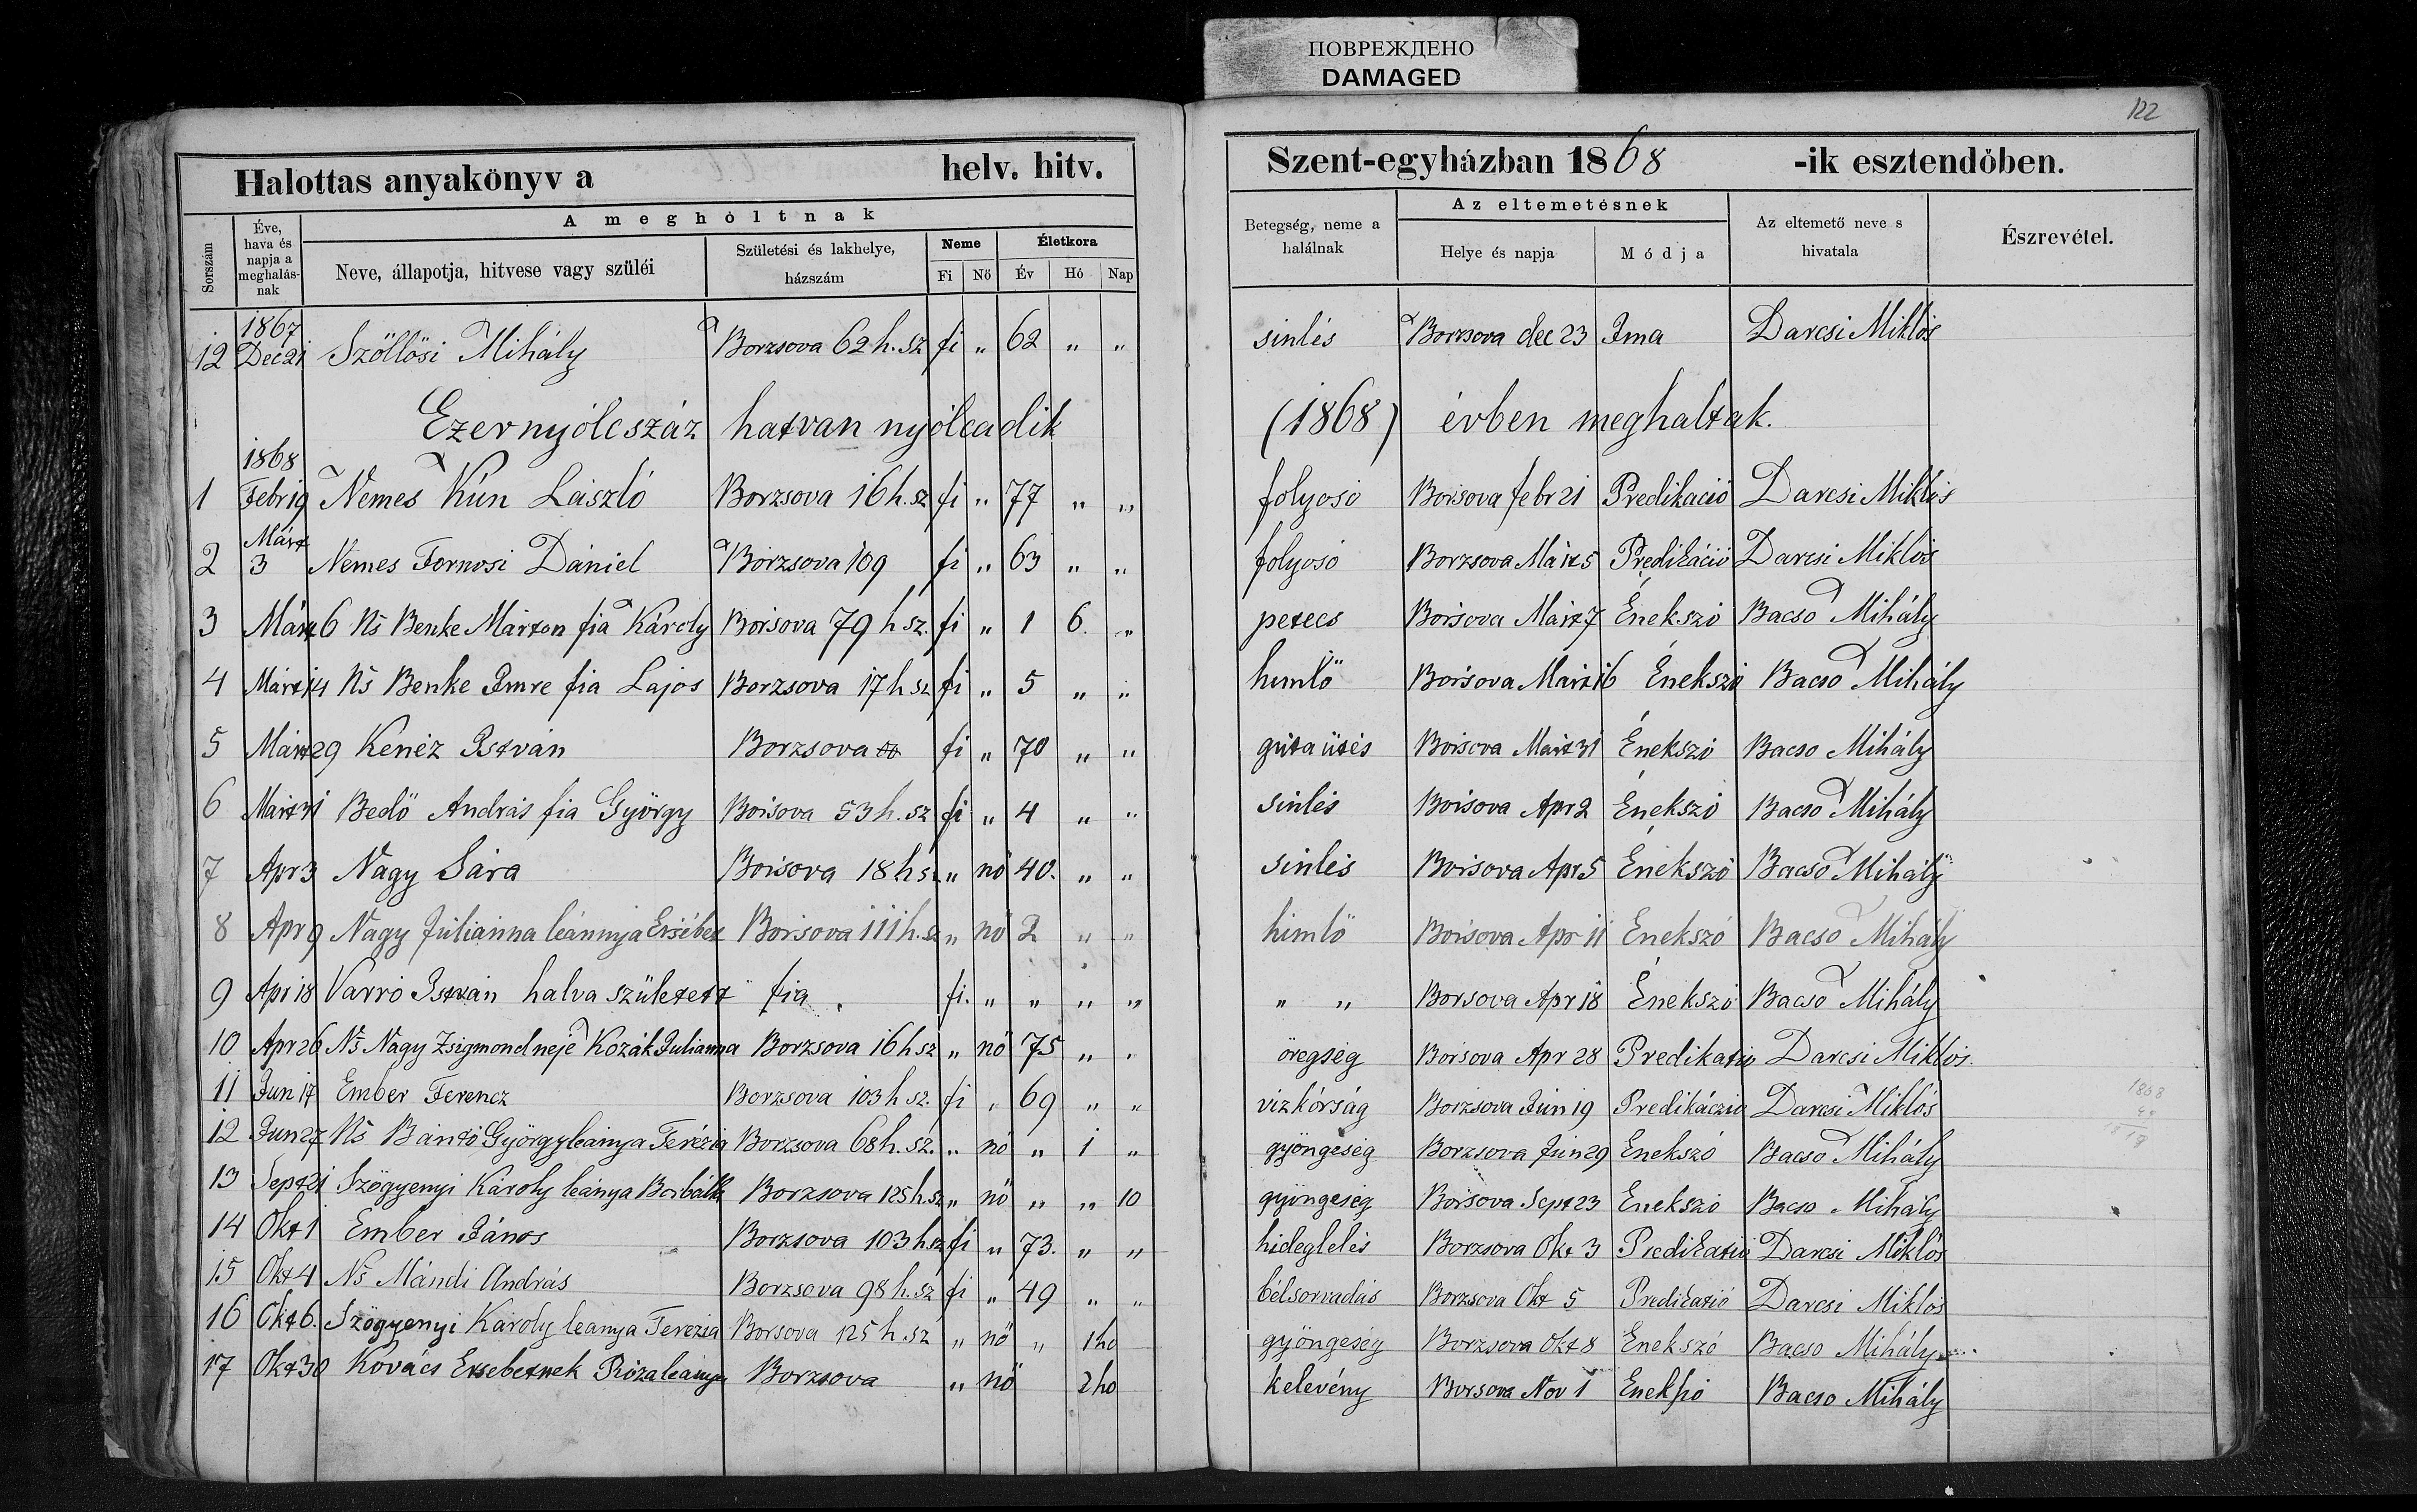 ПОВРЕЖДЕНО
DAMAGED
122
Halottas anyakönyv a helv. hitv. Szent-egyházban 1868 -ik esztendőben.
Sorszám
Éve, hava és napja a meghalás-nak
A meghóltnak
Neve, állapotja, hitvese vagy szüléi
Születési és lakhelye, házszám
Neme
Fi Nő
Életkora
Év Hó Nap
Betegség, neme a halálnak
Az eltemetésnek
Helye és napja
Módja
Az eltemető neve s hivatala
Észrevétel.
12 1867 Dec 21 Szöllösi Mihály Borzsova 62 h. sz fi „ 62 „ „ sinlés Borzsova dec 23 Ima Darcsi Miklós
Ezernyólcszáz hatvan nyólcadik (1868) évben meghaltak.
1 1868 Febr 19 Nemes Kún László Borzsova 16 h. sz fi „ 77 „ „ folyosó Borsova febr 21 Predikació Darcsi Miklós
2 Márt 3 Nemes Fornosi Dániel Borzsova 109 fi „ 63 „ „ folyosó Borzsova Márt 5 Predikáció Darcsi Miklós
3 Márt 6 Ns Benke Márton fia Károly Borsova 79 h sz. fi „ 1 6. „ petecs Borsova Márt 7 Énekszó Bacso Mihály
4 Márt 14 Ns Benke Imre fia Lajos Borzsova 17 h sz fi „ 5 „ „ himlö Borsova Márt 16 Énekszó Bacso Mihály
5 Márt 29 Kenéz István Borzsova fi „ 70 „ „ guta ütés Borsova Márt 31 Énekszó Bacso Mihály
6 Márt 31 Bedö András fia György Borsova 53 h. sz fi „ 4 „ „ sinlés Borsova Apr 2 Énekszó Bacso Mihály
7 Apr 3 Nagy Sára Borsova 18 h sz „ nö 40. „ „ sinlés Borsova Apr 5 Énekszó Bacso Mihály
8 Apr 9 Nagy Júlianna leánnya Ersébet Borsova 111 h. sz „ nö 2 „ „ himlö Borsova Apr 11 Enekszó Bacso Mihály
9 Apr 18 Varró István halva született fia. fi. „ „ „ „ „ „ Borsova Apr 18 Énekszó Bacso Mihály
10 Apr 26 Ns Nagy Zsigmond neje Kozák Julianna Borzsova 16 h sz „ nö 75 „ „ öregség Borsova Apr 28 Predikatio Darcsi Miklós.
11 Jun 17 Ember Ferencz Borzsova 103 h sz. fi „ 69 „ „ vizkórság Borzsova Jun 19 Predikáczio Darcsi Miklós
12 Jun 27 Ns Bántó György leánya Terézia Borzsova 68 h. sz. „ nö „ 1 „ gyöngeség Borzsova Jun 29 Enekszó Bacso Mihály
13 Sept 21 Szögyenyi Károly leánya Borbálla Borzsova 125 h sz „ nö „ „ 10 gyöngeség Borsova Sept 23 Enekszó Bacso Mihály
14 Okt 1 Ember János Borzsova 103 h. sz fi „ 73. „ „ hideglelés Borzsova Okt 3 Predikatio Darcsi Miklós
15 Okt 4 Ns Mándi András Borzsova 98 h. sz fi „ 49 „ „ bélsorvadás Borzsova Okt 5 Predikatió Darcsi Miklós
16 Okt 6. Szögyenyi Károly leanya Terezia Borsova 125 h. sz „ nö „ 1 ho gyöngeség Borzsova Okt 8 Enekszó Bacso Mihály
17 Okt 30 Kovács Ersebetnek Róza leánya Borzsova „ nö 2 ho kelevény Borsova Nov 1 Enekszó Bacso Mihály
1868